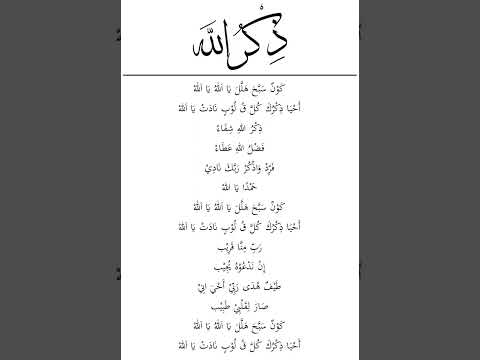 ذِكْرُ اللّٰه
كَوْنٌ سَبَّحَ هَلَّلَ يَا اَللّٰهُ يَا اَللّٰهُ
أَحْيَا ذِكْرُكَ كُلَّ قُ لُوْبٍ نَادَتْ يَا اَللّٰهُ
ذِكْرُ اللّٰهِ شِفَاءْ
فَضْلُ اللّٰهِ عَطَاءْ
فَرِّدْ وَاذْكُرْ رَبَّكَ نَادِيْ
حَمْدًا يَا اَللّٰهُ
كَوْنٌ سَبَّحَ هَلَّلَ يَا اَللّٰهُ يَا اَللّٰهُ
أَحْيَا ذِكْرُكَ كُلَّ قُ لُوْبٍ نَادَتْ يَا اَللّٰهُ
رَبِّ مِنَّا قَرِيْب
إِنْ نَدْعُوْهُ يُجِيْب
طَيْفُ هُدَى رَبِّيْ أَحْيَ انِيْ
صَارَ لِقَلْبِيْ طَبِيْب
كَوْنٌ سَبَّحَ هَلَّلَ يَا اَللّٰهُ يَا اَللّٰهُ
أَحْيَا ذِكْرُكَ كُلَّ قُ لُوْبٍ نَادَتْ يَا اَللّٰهُ